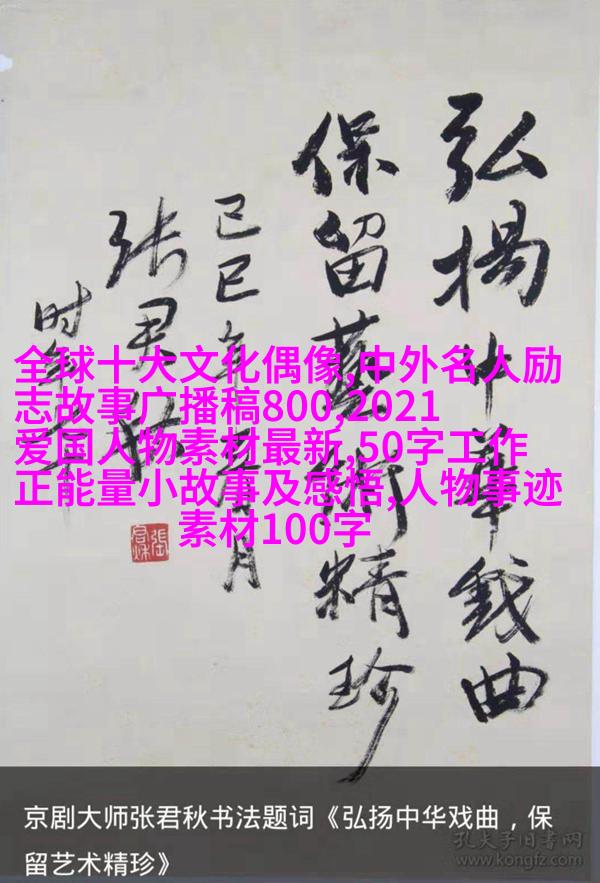 弘揚中華戏曲
保留藝術精珍
己巳年月
张君秋
时年
張君秋
全球十大文化偶像,中外名人励
志故事广播稿800,2021
爱国人物素材最新,50字工作
正能量小故事及感悟,人物事迹
素材100字
京剧大师张君秋书法题词《弘扬中华戏曲，保
留艺术精珍》
孔夫子旧书网
www.kongfz.com